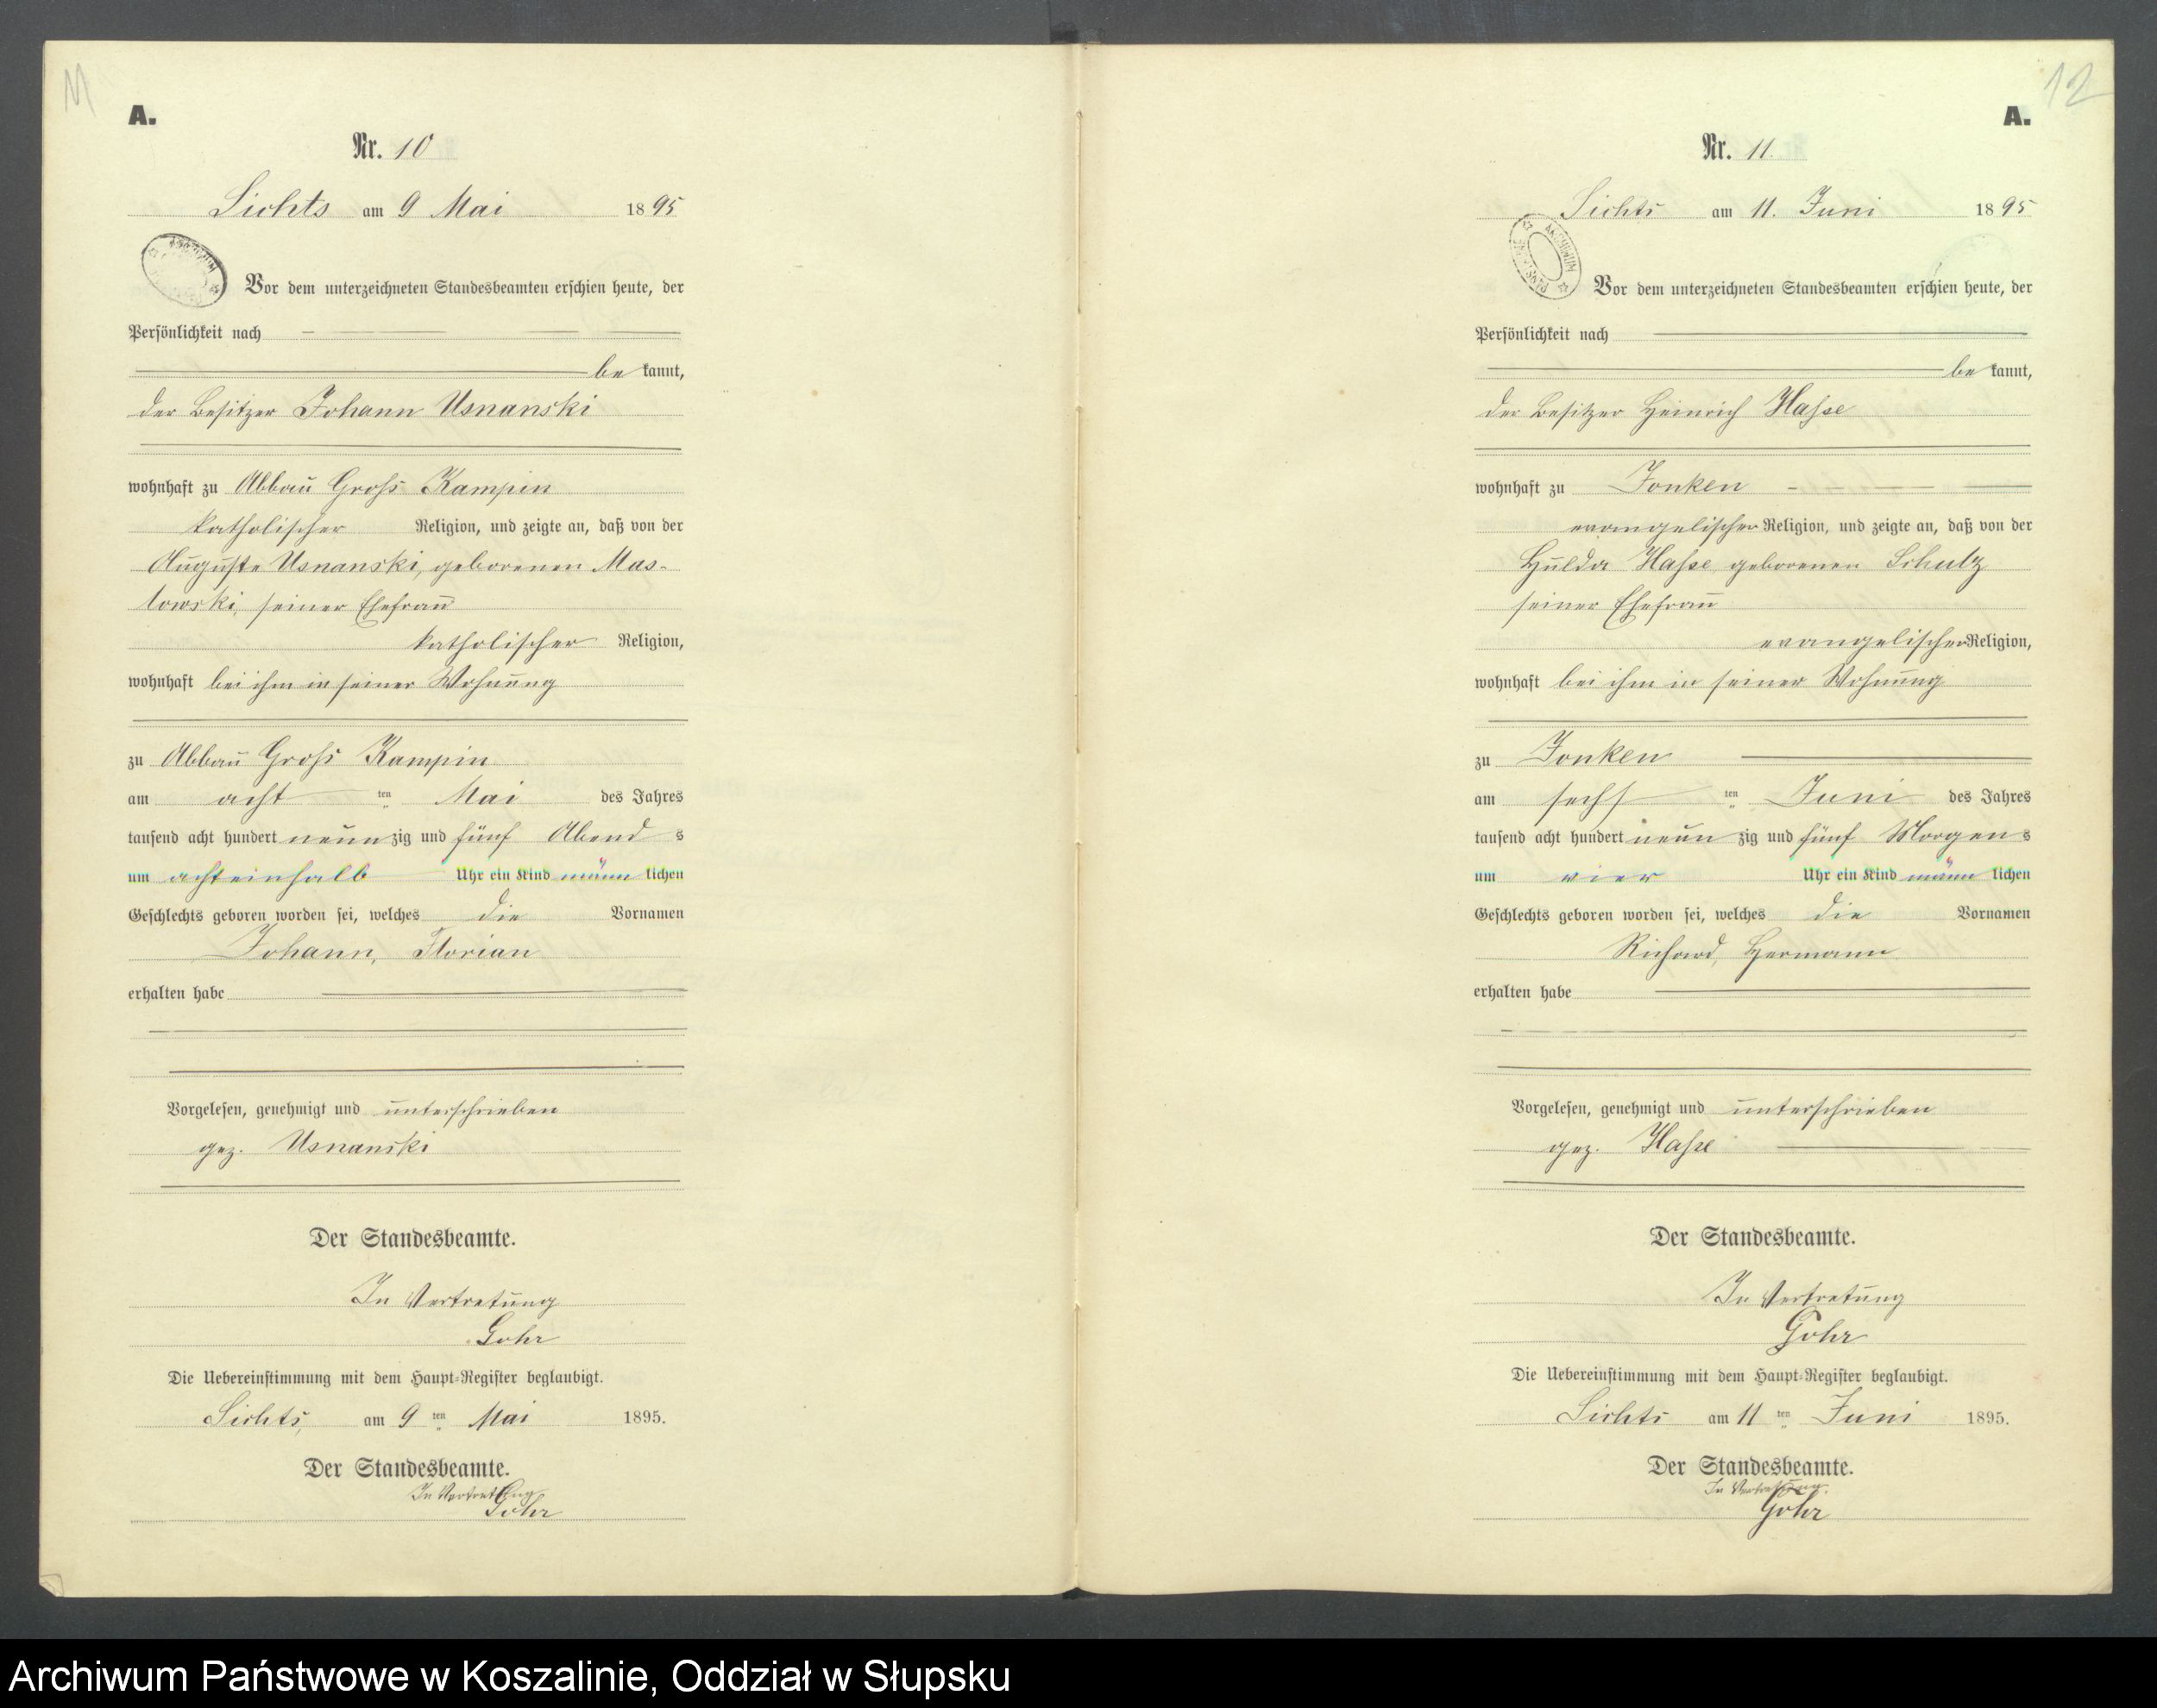 11
A.
Nr. 10
Lichts am 9 Mai 1895
Vor dem unterzeichneten Standesbeamten erschien heute, der
Persönlichkeit nach
bekannt,
der Besitzer Johann Usnanski
wohnhaft zu Abbau Gross Kampin
katholischer Religion, und zeigte an, daß von der
Auguste Usnanski, geborenen Mas-
lowski, seiner Ehefrau
katholischer Religion,
wohnhaft bei ihm in seiner Wohnung
zu Abbau Gross Kampin
am acht ten Mai des Jahres
tausend acht hundert neunzig und fünf Abends
um achteinhalb Uhr ein Kind männlichen
Geschlechts geboren worden sei, welches die Vornamen
Johann, Florian
erhalten habe
Vorgelesen, genehmigt und unterschrieben
gez. Usnanski
Der Standesbeamte.
In Vertretung
Gohr
Die Uebereinstimmung mit dem Haupt-Register beglaubigt.
Lichts, am 9 ten Mai 1895.
Der Standesbeamte.
In Vertretung
Gohr
12
A.
Nr. 11.
Lichts am 11. Juni 1895
ARCHIWUM PAŃSTWOWE
Vor dem unterzeichneten Standesbeamten erschien heute, der
Persönlichkeit nach
bekannt,
der Besitzer Heinrich Hasse
wohnhaft zu Jonken
evangelischer Religion, und zeigte an, daß von der
Hulda Hasse geborenen Schulz
seiner Ehefrau
evangelischer Religion,
wohnhaft bei ihm in seiner Wohnung
zu Jonken
am sechs ten Juni des Jahres
tausend acht hundert neunzig und fünf Morgens
um vier Uhr ein Kind männlichen
Geschlechts geboren worden sei, welches die Vornamen
Richard, Hermann
erhalten habe
Vorgelesen, genehmigt und unterschrieben
gez. Hasse
Der Standesbeamte.
In Vertretung
Gohr
Die Uebereinstimmung mit dem Haupt-Register beglaubigt.
Lichts am 11 ten Juni 1895.
Der Standesbeamte.
In Vertretung.
Gohr
Archiwum Państwowe w Koszalinie, Oddział w Słupsku